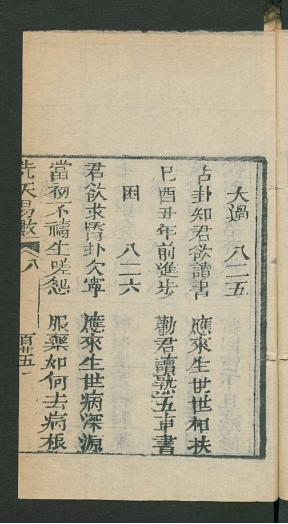 大過 八二五
占卦知君欲讀書 應來生世世相扶
巳酉丑年前進步 勸君讀熟五車書
困 八二六
君欲求醫卦欠寧 應來生世病深源
當初不禱生嗟怨 服藥如何去病根
先天易數 八 百廿五